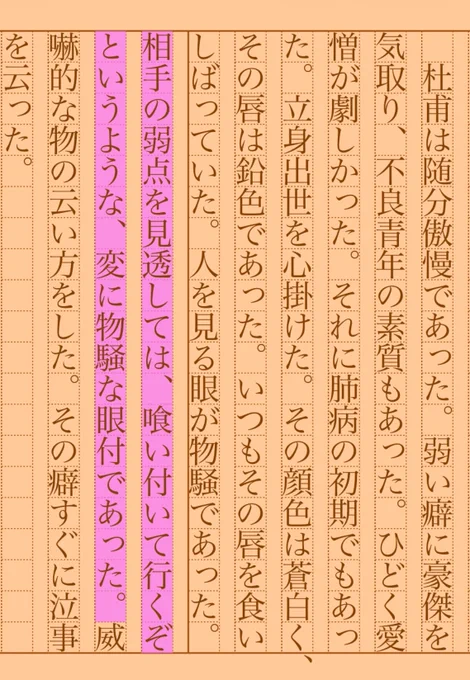 杜甫は随分傲慢であった。弱い癖に豪傑を
気取り、不良青年の素質もあった。ひどく愛
憎が劇しかった。それに肺病の初期でもあっ
た。立身出世を心掛けた。その顔色は蒼白く、
その唇は鉛色であった。いつもその唇を食い
しばっていた。人を見る眼が物騒であった。
相手の弱点を見透しては、喰い付いて行くぞ
というような、変に物騒な眼付であった。威
嚇的な物の云い方をした。その癖すぐに泣事
を云った。